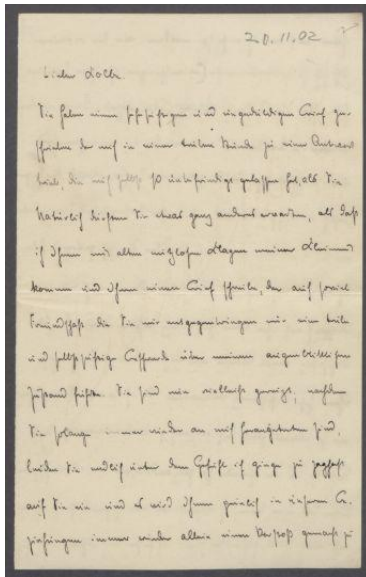 20.11.02
Lieber Kolbe.
Sie haben einen sehr und ungeduldigen Brief ge-
schrieben der mich in einer Stunde zu einer Antwort
die mich selbst so unbefriedigt gelassen hat, als Sie
Natürlich durften Sie etwas ganz anderes erwarten, als daß
ich Ihnen mit alten Klagen meiner
komme und Ihnen einen Brief schreibe, der auf soviel
Freundschaft die Sie mir entgegenbringen nur eine
und selbst über meinen augenblicklichen
Zustand Sie sind nun vielleicht geneigt, nachdem
Sie solange immer wieder an mich herangetreten sind,
Sie endlich unter dem Gefühl ich ginge zu
auf Sie ein und es wird Ihnen peinlich in unseren Be-
ziehungen immer wieder allein einen Vorstoß gemacht zu